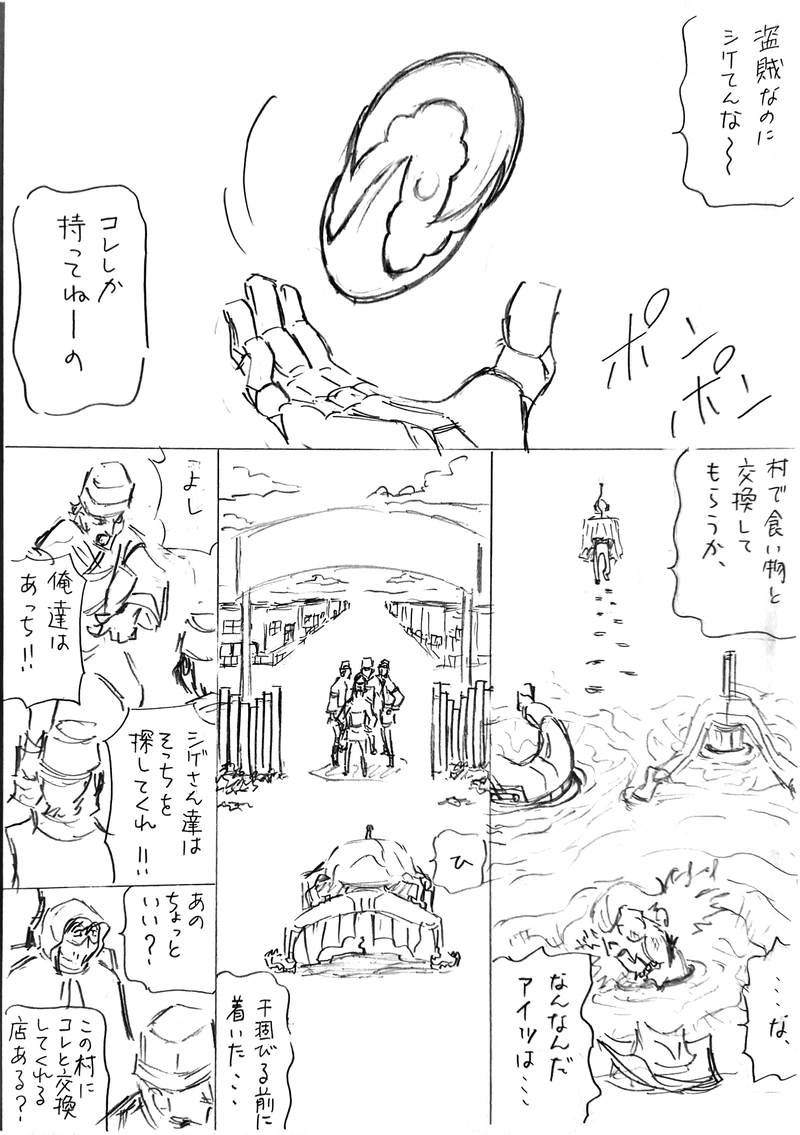 盗賊なのに
シケてんな〜
コレしか
持ってねーの
ポン
ポン
村で食い物と
交換して
もらうか、
・・・な、
なんなんだ
アイツは・・・
ひ
干涸びる前に
着いた・・・
よし
俺達は
あっち!!
シゲさん達は
そっちを
探してくれ!!
あの
ちょっと
いい?
この村に
コレと交換
してくれる
店ある?